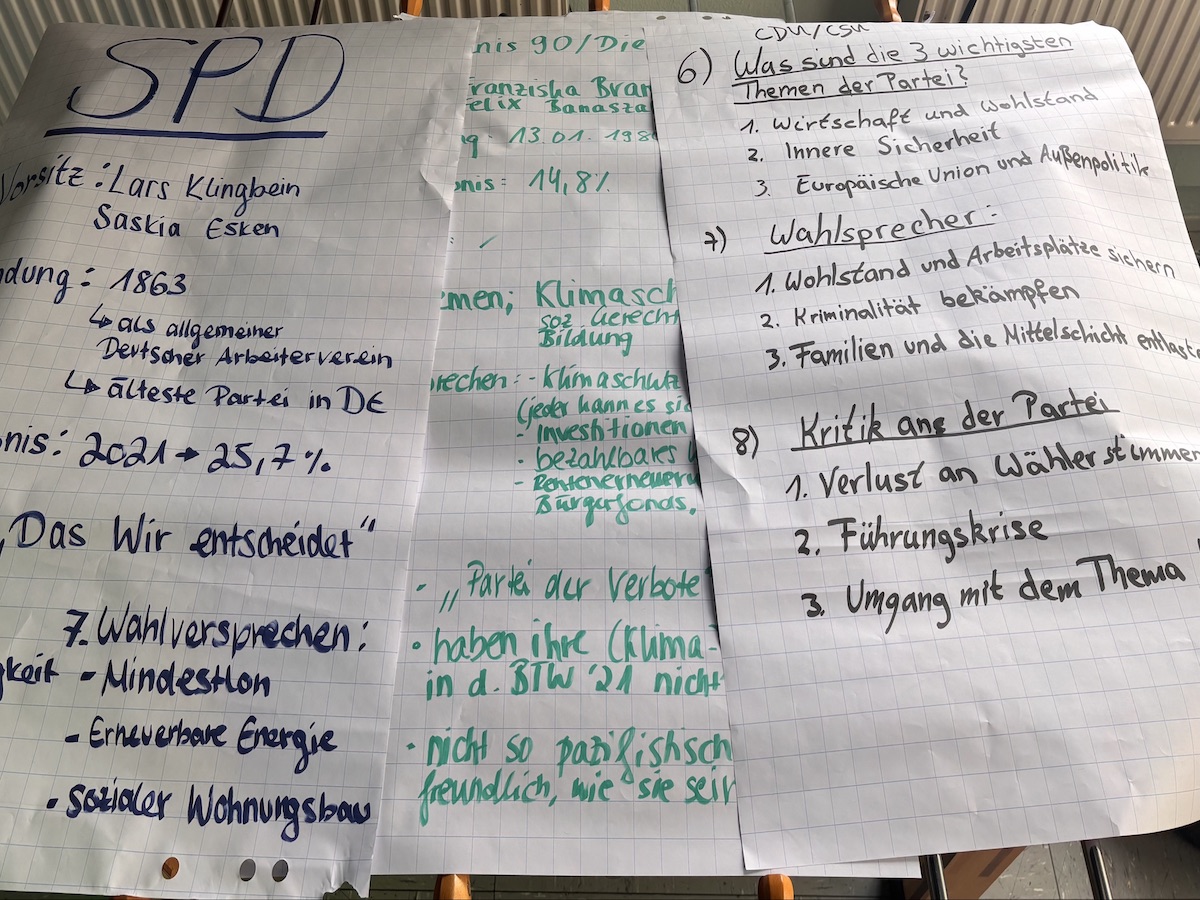 SPD
Vorsitz: Lars Klingbein
Saskia Esken
ndung: 1863
↳ als allgemeiner
Deutscher Arbeiterverein
↳ älteste Partei in DE
bnis: 2021 → 25,7%
„Das Wir entscheidet“
7. Wahlversprechen:
gkeit - Mindestlon
- Erneuerbare Energie
- sozialer Wohnungsbau
nis 90/Die
Franziska Bran
elix Banasza
g: 13.01.198
nis: 14,8%
: ✓
emen; Klimasch
soz Gerecht
Bildung
rechen: - Klimaschutz
(jeder kann es sic
- Investitionen
- bezahlbares
- Rentenerneueru
Bürgerfonds,
• „Partei der Verbote
• haben ihre (Klima-
in d. BTW '21 nicht
• nicht so pazifistisch
freundlich, wie sie sein
CDU/CSU
6) Was sind die 3 wichtigsten
Themen der Partei?
1. Wirtschaft und Wohlstand
2. Innere Sicherheit
3. Europäische Union und Außenpolitik
7) Wahlsprecher:
1. Wohlstand und Arbeitsplätze sichern
2. Kriminalität bekämpfen
3. Familien und die Mittelschicht entlaste
8) Kritik ane der Partei
1. Verlust an Wählerstimmen
2. Führungskrise
3. Umgang mit dem Thema